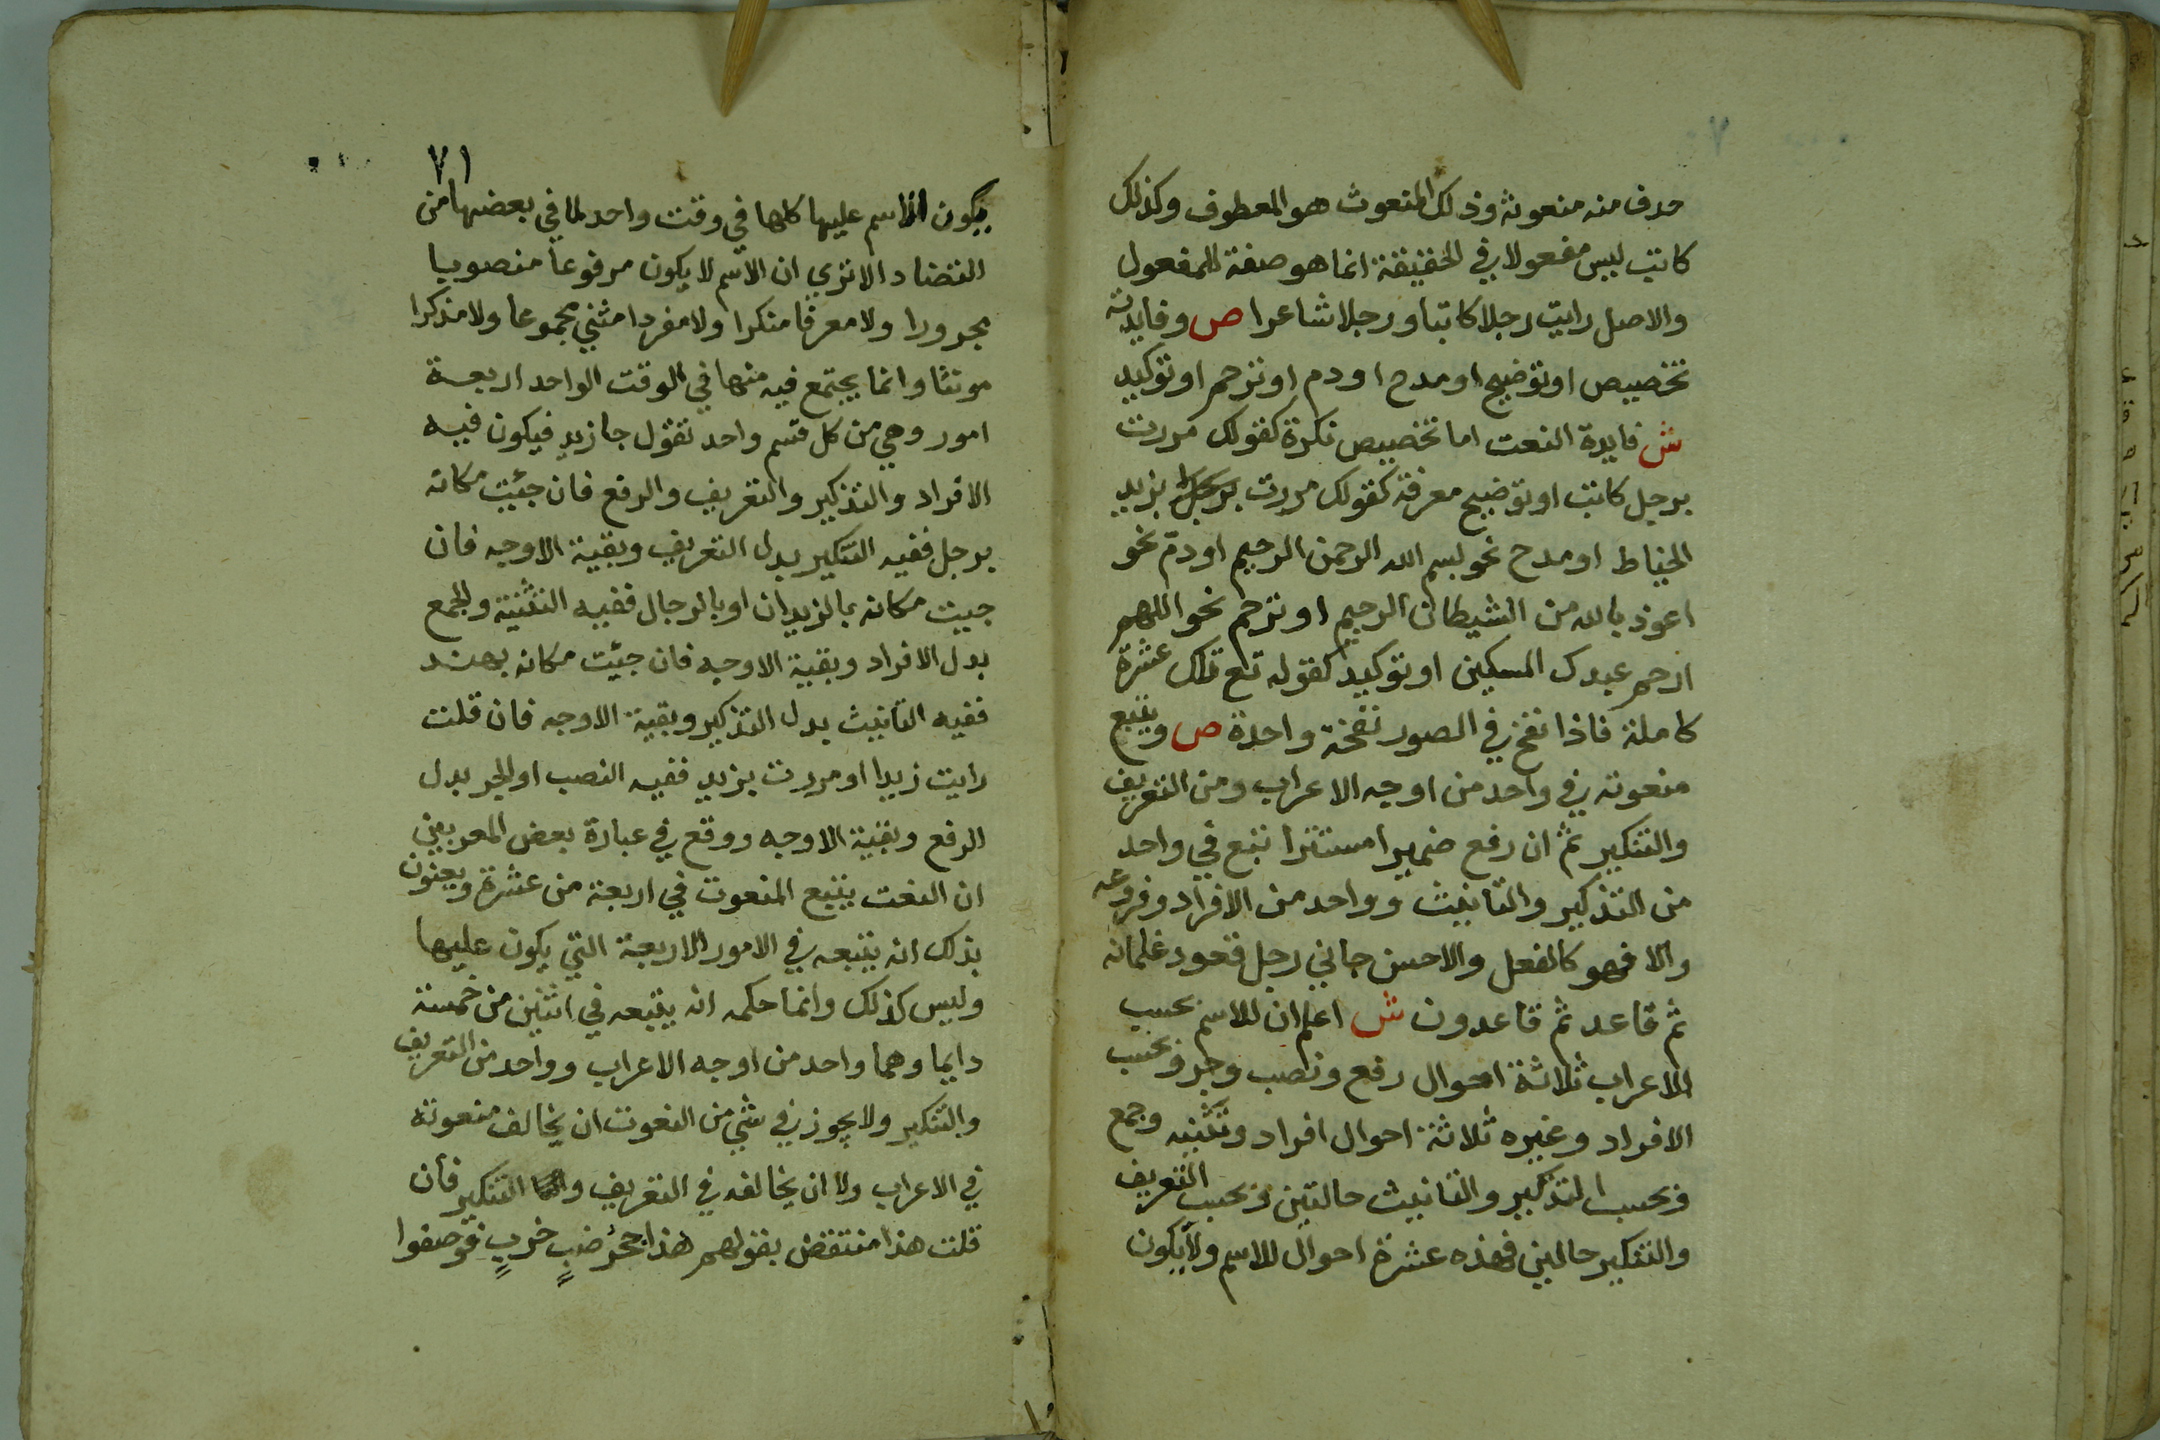 حدف منه منعوته وذلك المنعوت هو المعطوف وكذلك
كاتب ليس مفعولا في الحقيقة انما هو صفة للمفعول
والاصل رايت رجلا كاتبا ورجلا شاعرا ص وفايدته
تخصيص او توضيح او مدح او دم او ترحم او توكيد
ش فايدة النعت اما تخصيص نكرة كقولك مررت
برجل كاتب او توضيح معرفة كقولك مررت بزيد
الخياط او مدح نحو بسم الله الرحمن الرحيم او دمّ نحو
اعوذ بالله من الشيطان الرجيم او ترحم نحو اللهم
ارحم عبدك المسكين او توكيد كقوله تع تلك عشرة
كاملة فاذا نفخ في الصور نفخة واحدة ص ويتبع
منعوته في واحد من اوجه الاعراب ومن التعريف
والتنكير ثم ان رفع ضميرا مستترا تبع في واحد
من التذكير والتانيث وواحد من الافراد وفروعه
والا فهو كالفعل والاحسن جاني رجل قعود غلمانه
ثم قاعد ثم قاعدون ش اعلم ان للاسم بحسب
الاعراب ثلاثة احوال رفع ونصب وجر وبحسب
الافراد وغيره ثلاثة احوال افراد وتثنيه وجمع
وبحسب التذكير والتانيث حالتين وبحسب التعريف
والتنكير حالين فهذه عشرة احوال للاسم ولا يكون
٧١
يكون الاسم عليها كلها في وقت واحد لما في بعضها من
التضاد الا تري ان الاسم لا يكون مرفوعا منصوبا
مجرورا ولا معرفا منكرا ولا مفردا مثني مجموعا ولا مذكرا
مونثا وانما يجتمع فيه منها في الوقت الواحد اربعة
امور وهي من كل قسم واحد تقول جا زيد فيكون فيه
الافراد والتذكير والتعريف والرفع فان جئيت مكانه
برجل ففيه التنكير بدل التعريف وبقية الاوجه فان
جيت مكانه بالزيدان او بالرجال ففيه التثنية والجمع
بدل الافراد وبقية الاوجه فان جئت مكانه بهند
ففيه التانيث بدل التذكير وبقية الاوجه فان قلت
رايت زيدا او مررت بزيد ففيه النصب او الجر بدل
الرفع وبقية الاوجه ووقع في عبارة بعض المعربين
ان النعت يتبع المنعوت في اربعة من عشرة ويعنون
بذلك انه يتبعه في الامور الاربعة التي يكون عليها
وليس كذلك وانما حكمه انه يتبعه في اثنين من خمسة
دايما وهما واحد من اوجه الاعراب وواحد من التعريف
والتنكير ولا يجوز في شي من النعوت ان يخالف منعوته
في الاعراب ولا ان يخالفه في التعريف والتنكير فان
قلت هذا منتقض بقولهم هذا جحرُ ضبٍ خربٍ فوصفوا